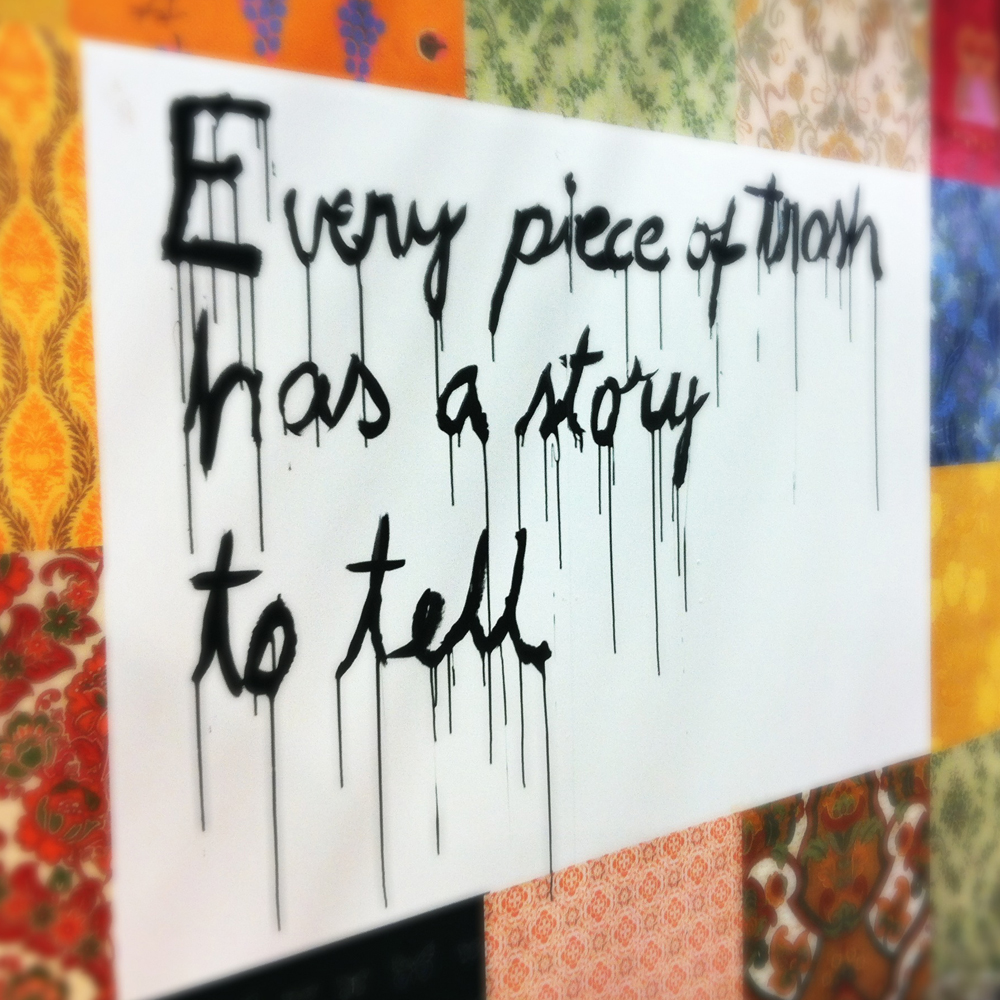 Every piece of trash
has a story
to tell